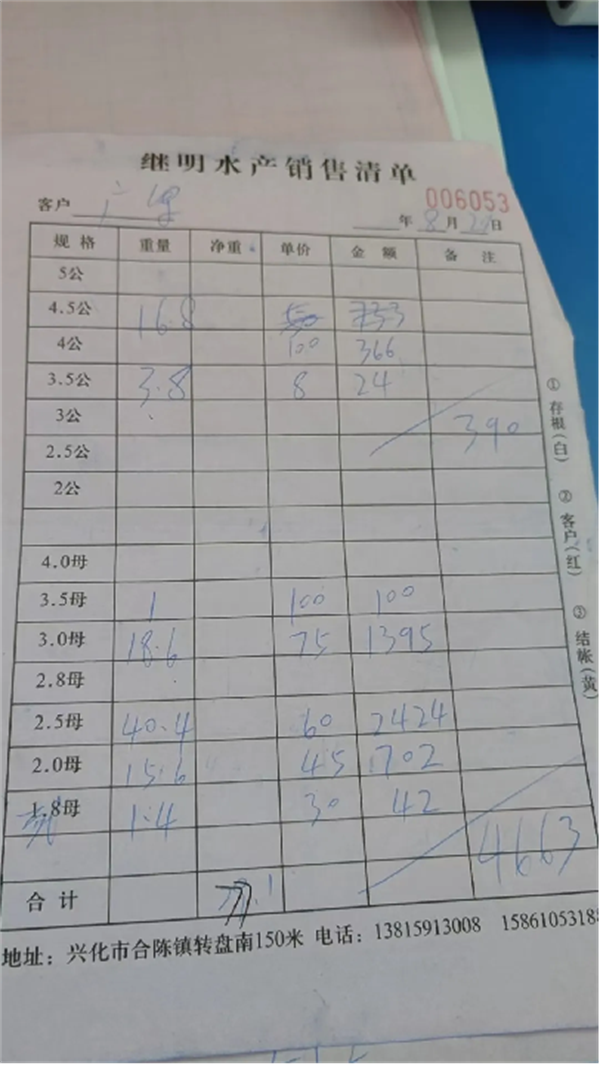 继明水产销售清单
006053
客户 年8月2日
规格 重量 净重 单价 金额 备注
5公
4.5公 16.8 733
4公 100 366
3.5公 3.8 8 24
3公 390
2.5公
2公
4.0母
3.5母 1 100 100
3.0母 18.6 75 1395
2.8母
2.5母 40.4 60 2424
2.0母 15.6 45 702
1.8母 1.4 30 42
4663
合计 77.1
①存根(白) ②客户(红) ③结帐(黄)
地址：兴化市合陈镇转盘南150米 电话：13815913008 1586105318